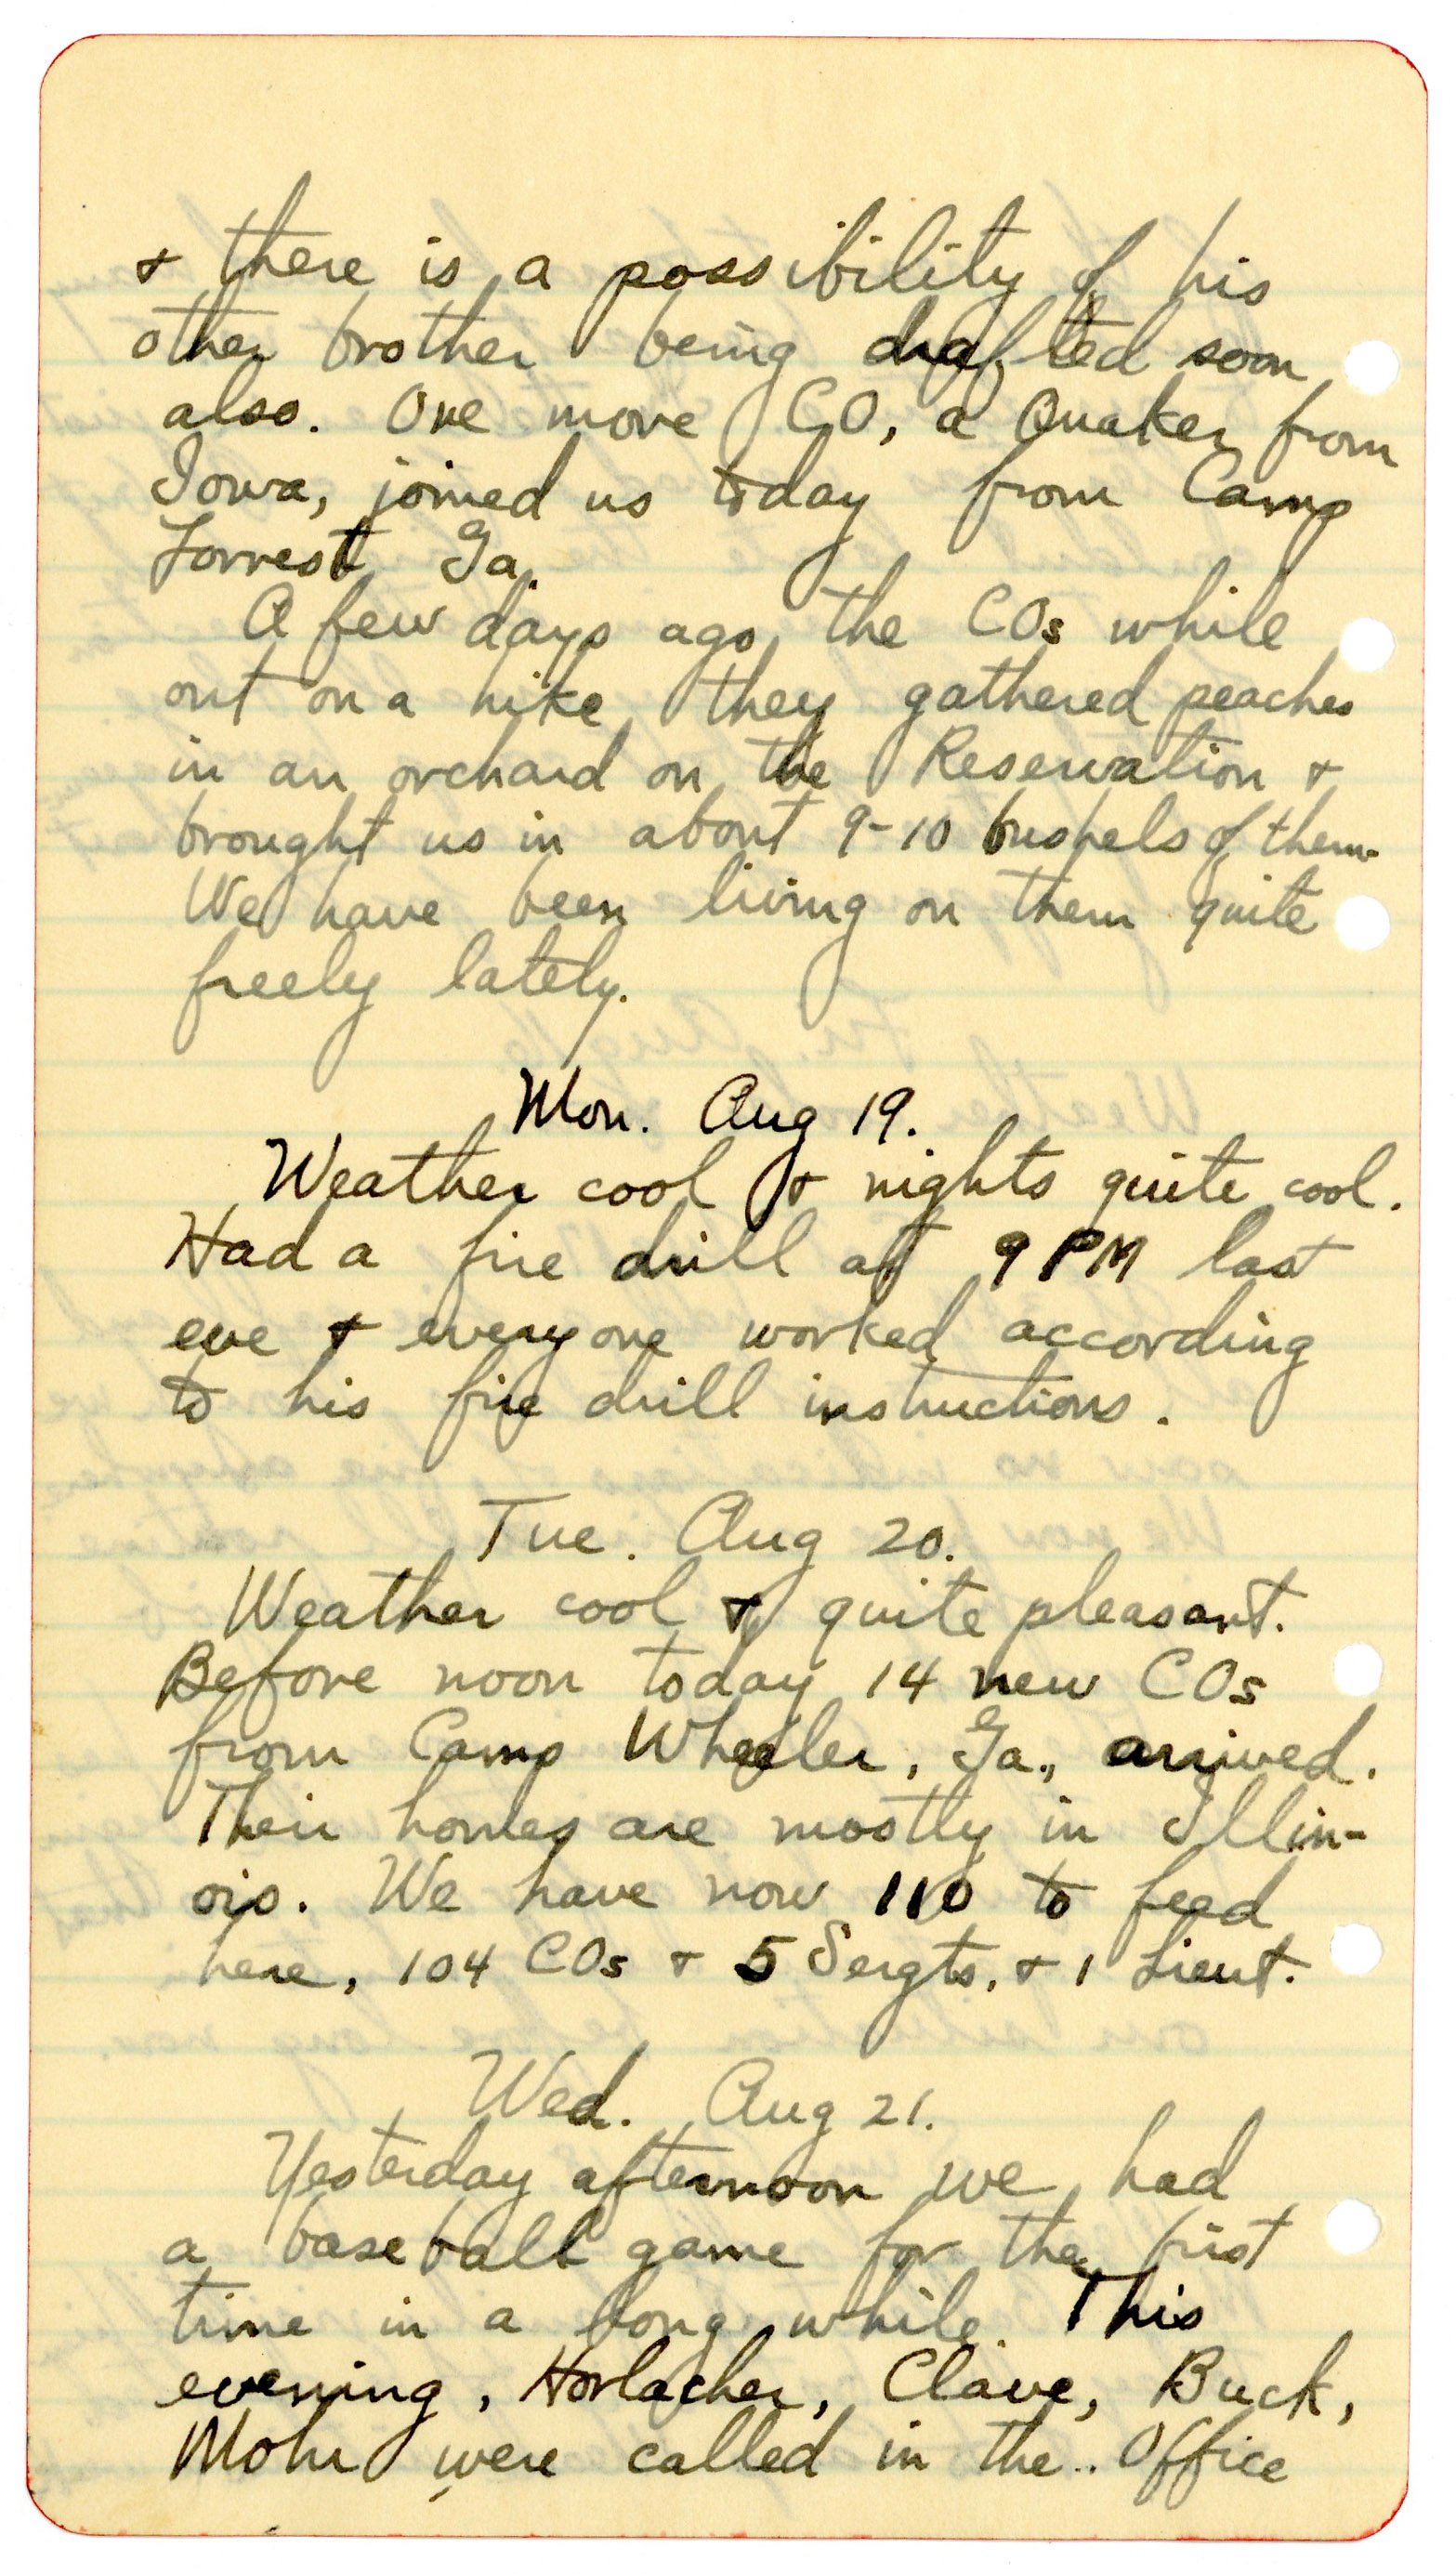 & there is a possibility of his
other brother being drafted soon
also. One more CO, a Quaker from
Iowa, joined us today from Camp
Forrest Ga.
A few days ago, the COs while
out on a hike, they gathered peaches
in an orchard on the Reservation &
brought us in about 9-10 bushels of them.
We have been living on them quite
freely lately.
Mon. Aug 19.
Weather cool & nights quite cool.
Had a fire drill at 9 PM last
eve & everyone worked according
to his fire drill instructions.
Tue. Aug 20.
Weather cool & quite pleasant.
Before noon today 14 new COs
from Camp Wheeler, Ga., arrived.
Their homes are mostly in Illin-
ois. We have now 110 to feed
here, 104 COs & 5 Sergts. & 1 Lieut.
Wed. Aug 21.
Yesterday afternoon we had
a baseball game for the first
time in a long while. This
evening, Horlacher, Clave, Buck,
Mohr were called in the.. Office